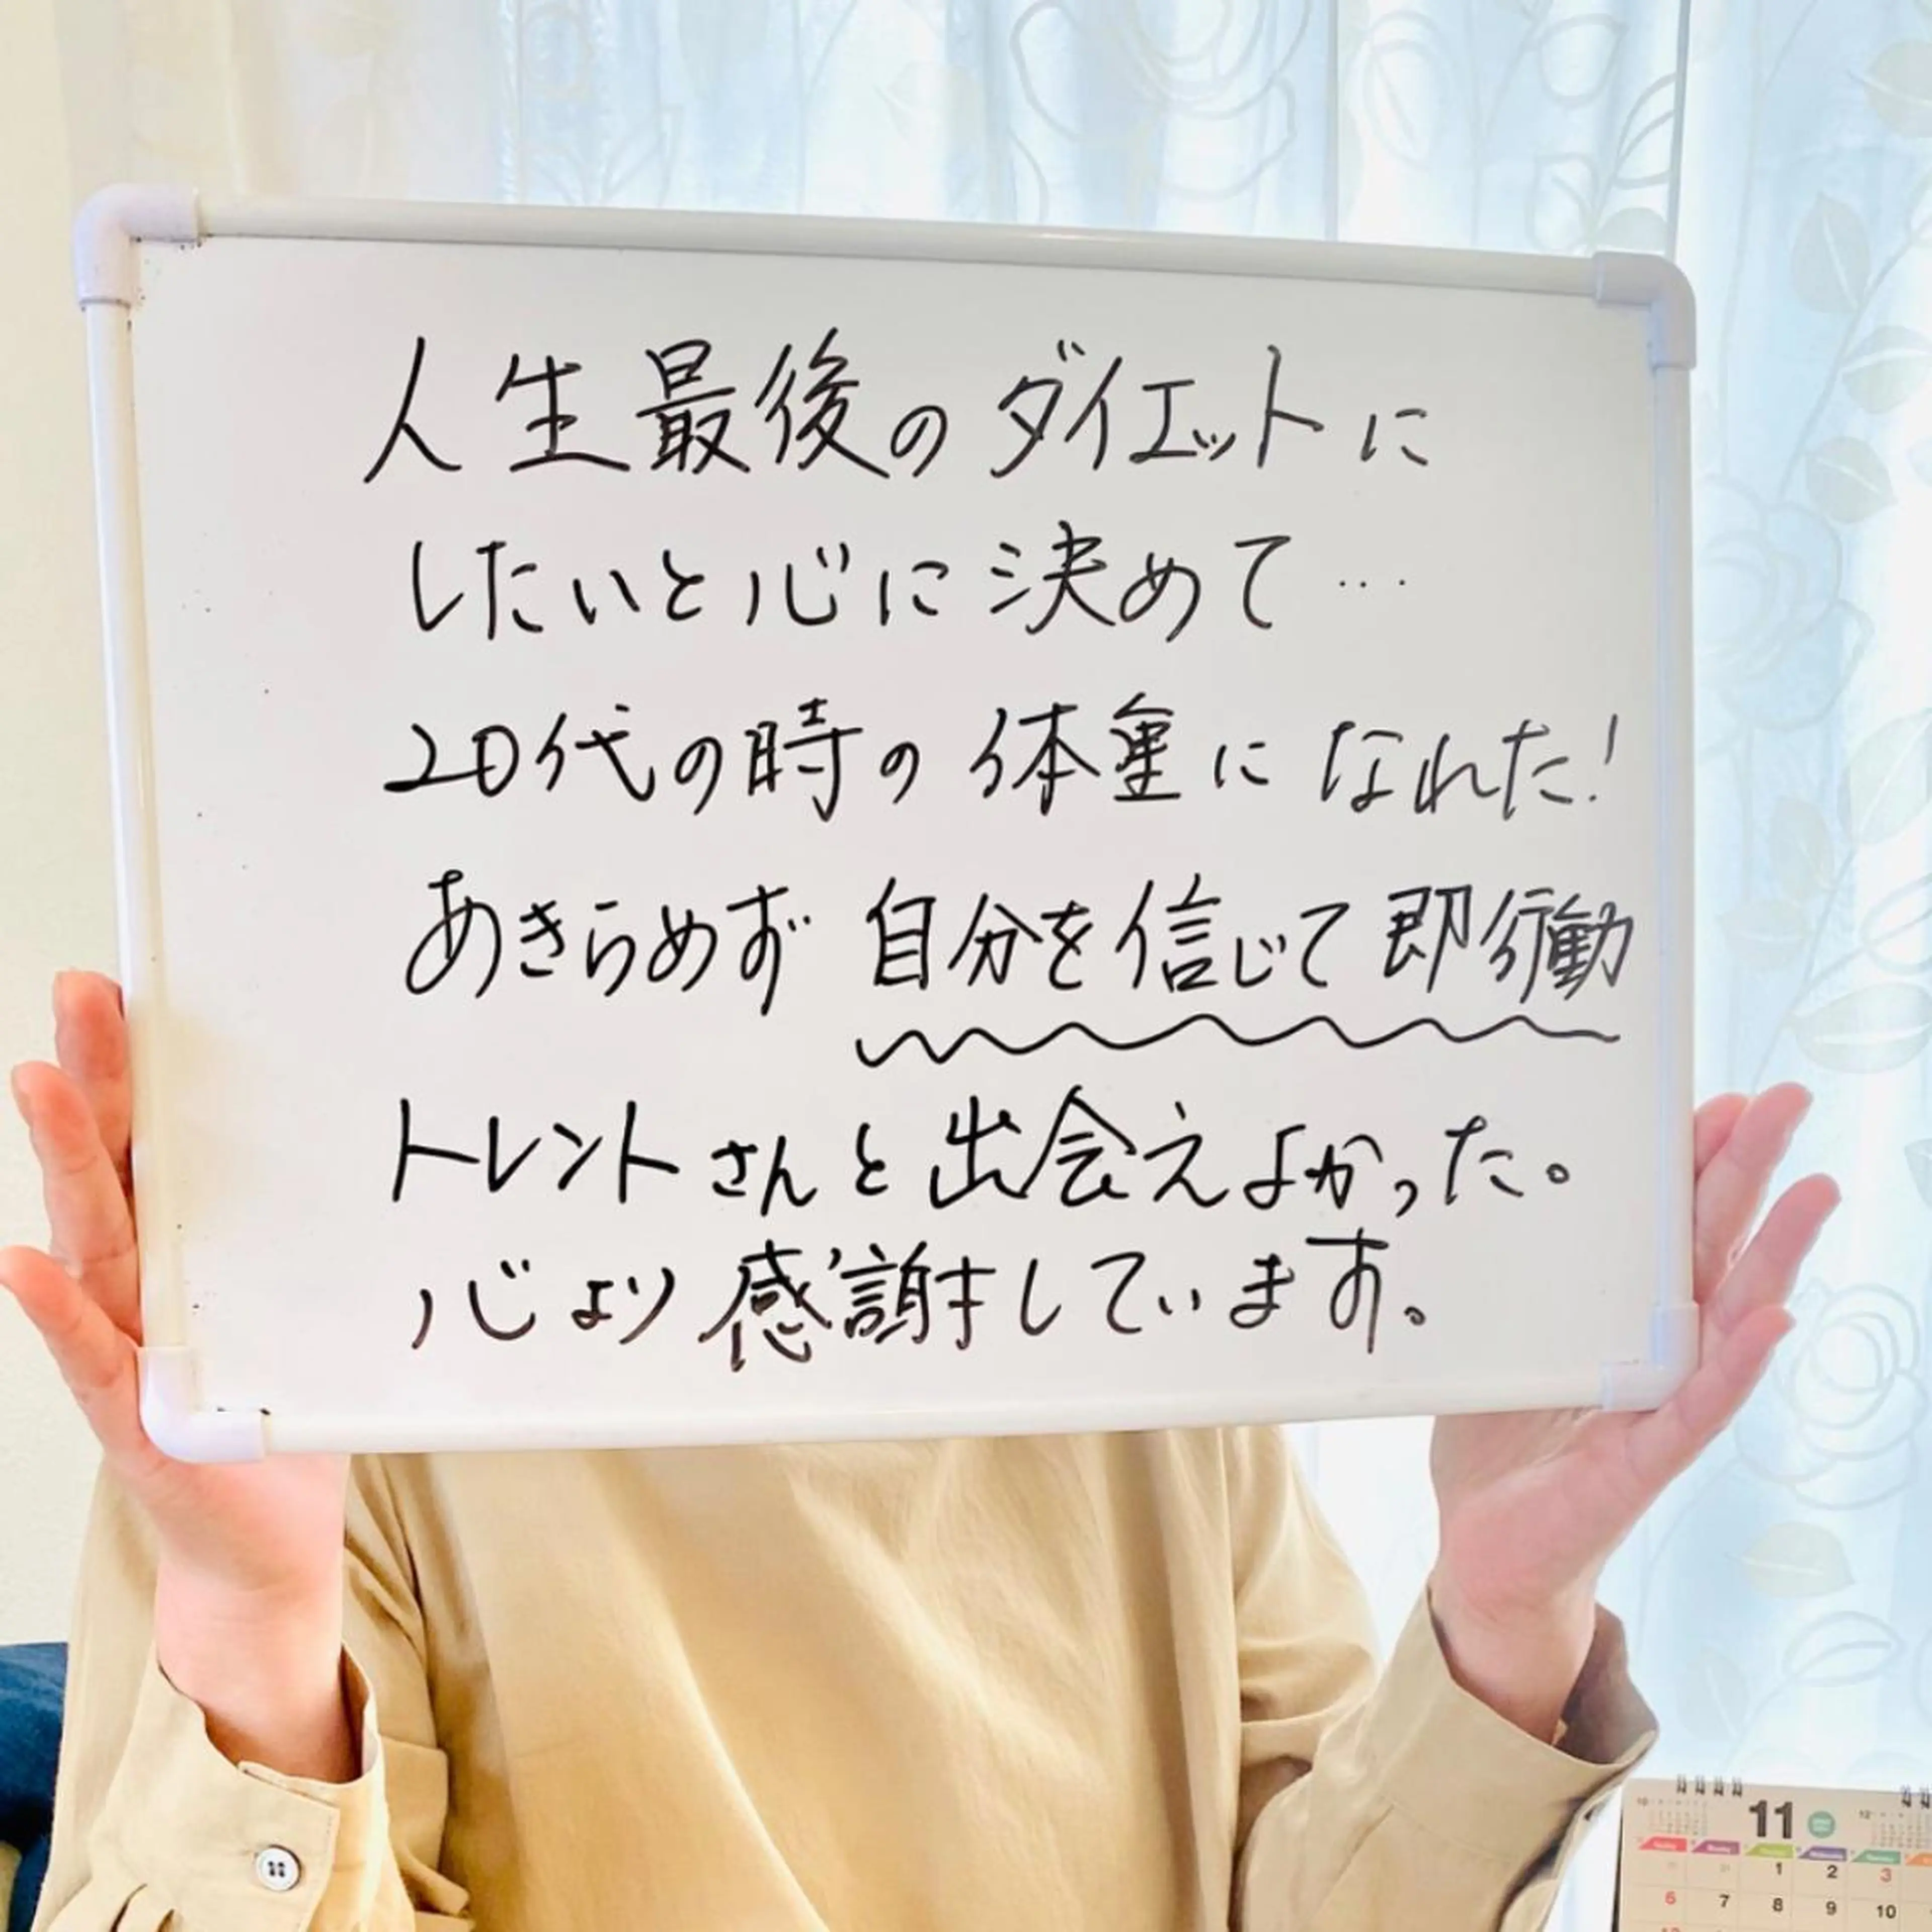 人生最後のダイエットに
したいと心に決めて…
20代の時の体重になれた!
あきらめず 自分を信じて即行動
トレントさんと出会えよかった。
心より感謝しています。
11
1 2 3
6 7 8 9 10